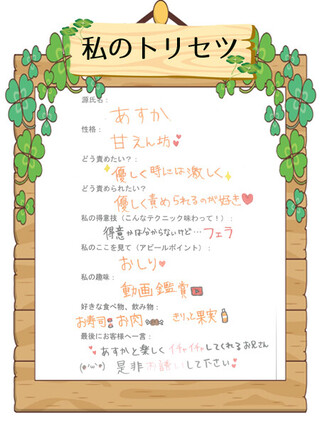 私のトリセツ
源氏名：
あすか
性格：
甘えん坊
どう責めたい？
優しく時には激しく
どう責められたい？
優しく責められるのが好き
私の得意技（こんなテクニック味わって！）：
得意かは分からないけど…フェラ
私のここを見て（アピールポイント）：
おしり
私の趣味：
動画鑑賞
好きな食べ物、飲み物：
お寿司 お肉 さりと果実
最後にお客様へ一言：
あすかと楽しくイチャイチャしてくれるお兄さん
是非お誘いしてださい